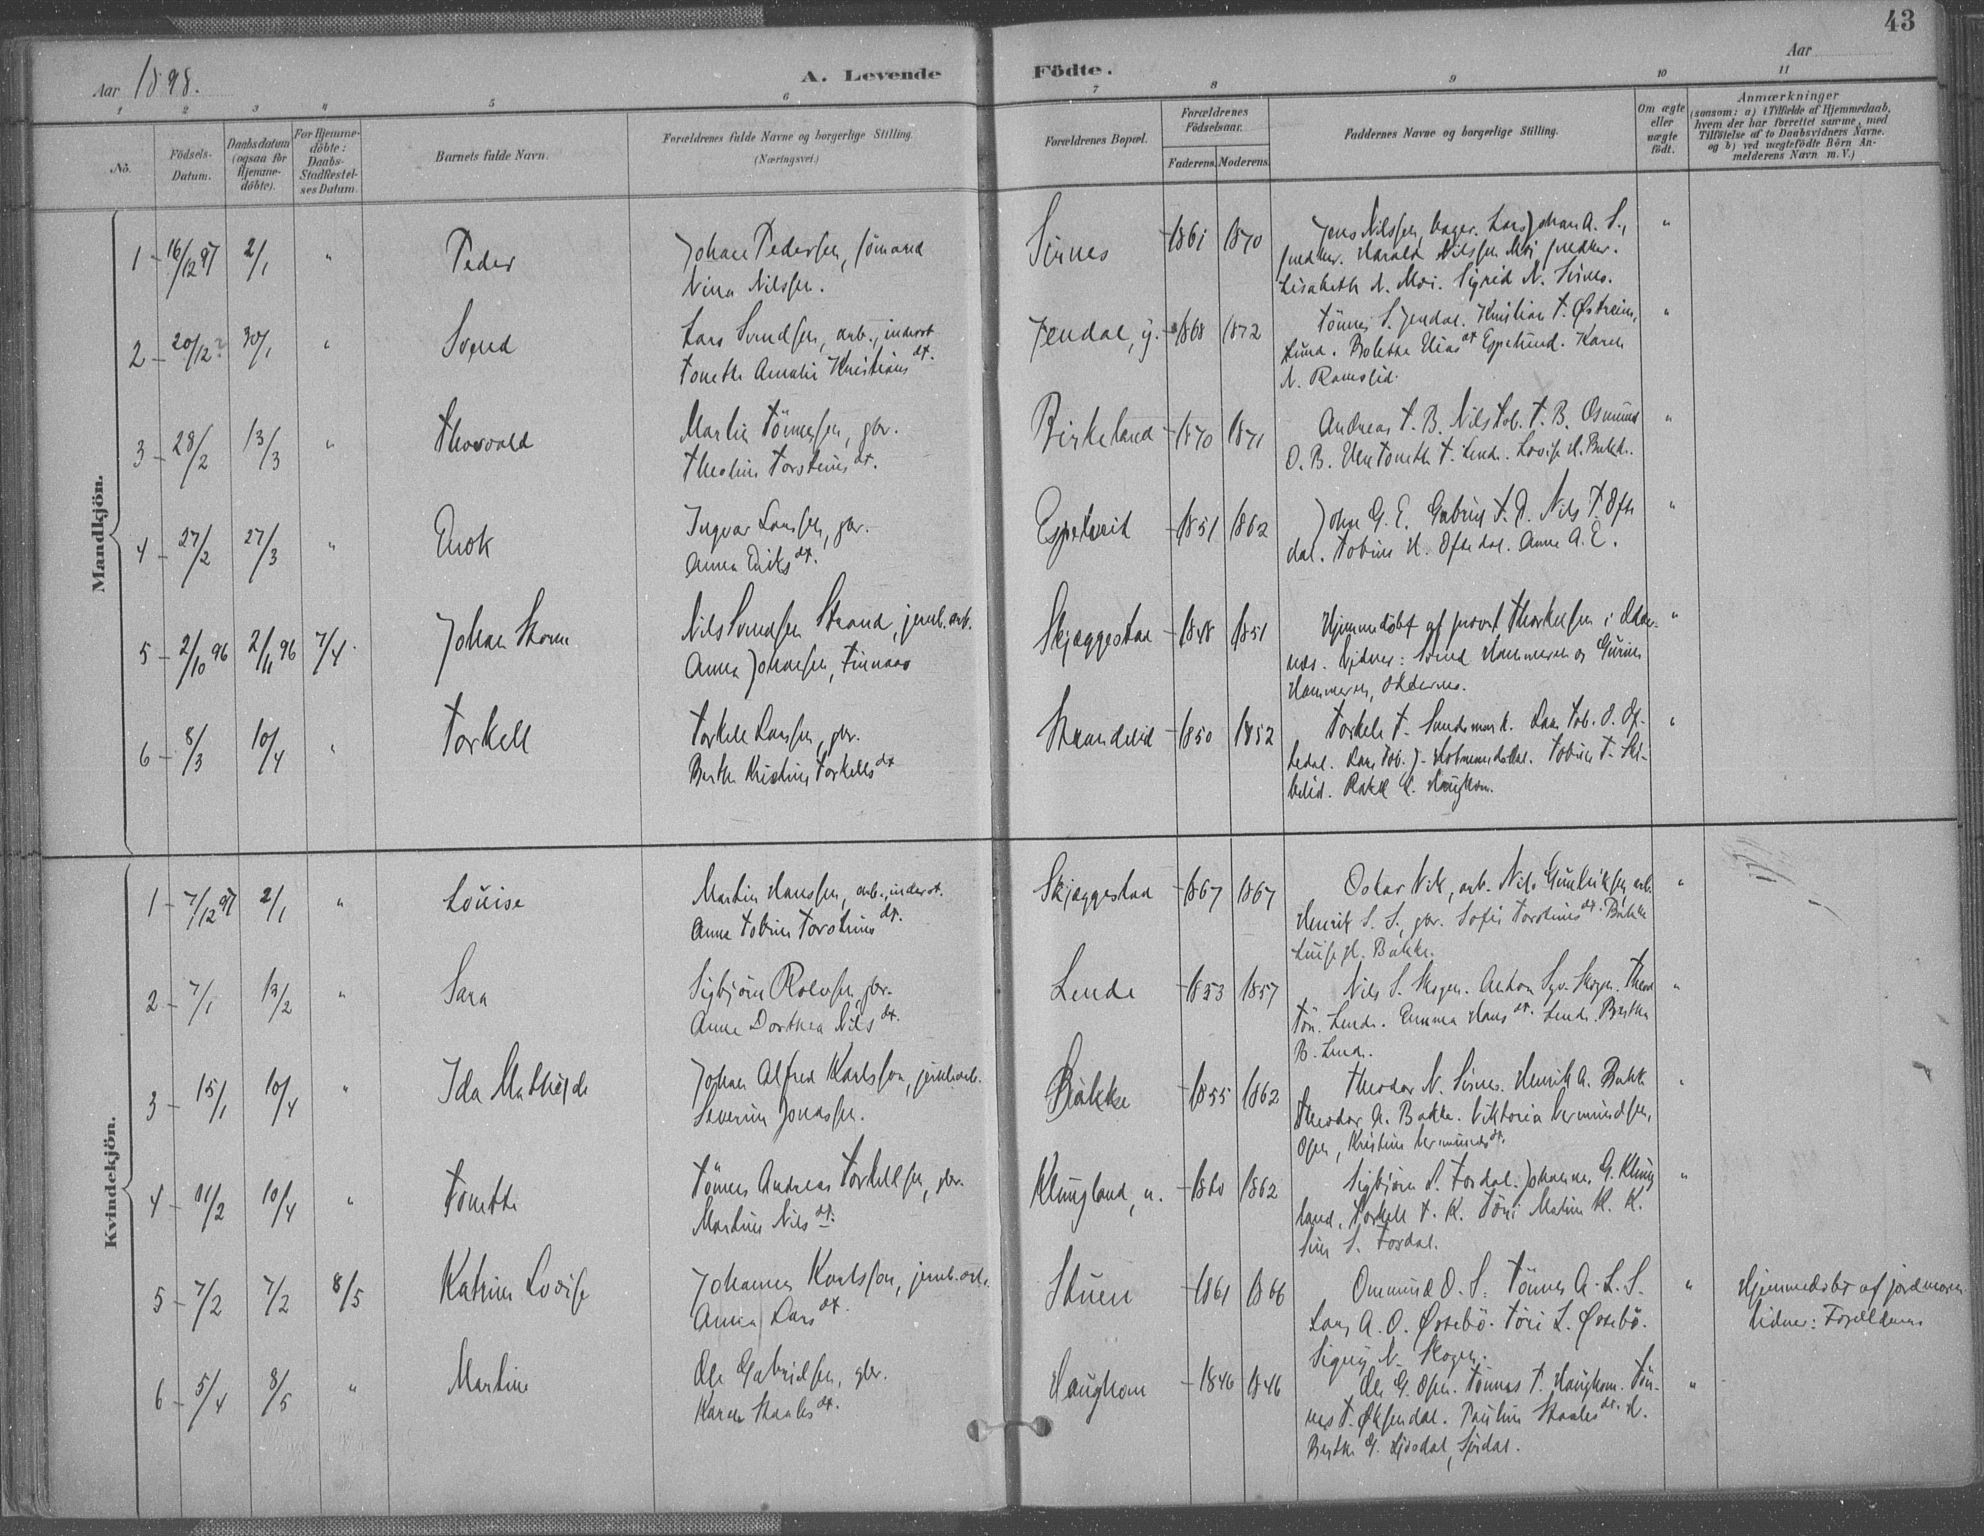 43
Aar 1898.
A. Levende Födte.
Aar
1 2 3 4 5 6 7 8 9 10 11
No.
Födsels-Datum.
Daabsdatum (ogsaa for Hjemme-döbte).
For Hjemme-döbte: Daabs-Stadfæstel-ses Datum.
Barnets fulde Navn.
Forældrenes fulde Navne og borgerlige Stilling.
(Næringsvei.)
Forældrenes Bopæl.
Forældrenes Födselsaar.
Faderens. Moderens.
Faddernes Navne og borgerlige Stilling.
Om ægte eller uægte födt.
Anmærkninger
(saasom: a) i Tilfælde af Hjemmedaab, hvem der har forrettet samme, med Tilföielse af to Daabsvidners Navne. og b) ved uægtefödte Börn An-melderens Navn m. V.)
Mandkjön.
1 16/12 97 2/1 " Peder
Johan Pedersen, sömand
Nina Nilssen.
Sirnes 1861 1870
Jens Nilssen, bager. Lars Johan A. S.,
snedker. Harald Nilssen Moi, snedker.
Lisabeth N. Moi. Sigrid N. Sirnes.
2 20/12 30/1 " Svend
Lars Svendsen, arb., inderst
Tonette Amalie Kristians dt.
Jendal, y. 1868 1872
Tönnes S. Jendal. Kristian T. Østreim,
Lund. Bolette Elias dt Espelund. Karen
N. Ramslid.
3 28/2 13/3 " Thorvald
Martin Tönnessen, gbr.
Theoline Torsteins dt.
Birkeland 1870 1871
Andreas T. B. Nils Tob. T. B. Osmund
O. B. Elen Tonette T. Lende. Lovise H. Bakke.
4 27/2 27/3 "
Ingvar Larssen, gbr.
Anna Eriks dt.
Espetveit 1851 1862
John G. E. Gabriel T. O. Nils T. Ofte
dal. Tobine H. Oftedal. Anne A. E.
5 2/10 96 2/11 96 7/4 Johan Storm
Nils Svendsen Strand, jernb.arb.
Anna Johansen, Finnaas
Skjæggestad 1848 1851
Hjemmedöbt af provst Thorkelsen i
Vidner: Svend Hammeren og
Hammeren,
6 8/3 10/4 " Torkell
Torkell Larssen, gbr.
Berthe Kristine Torkells dt
Strandlid 1850 1852
Torkell T. Sandsmark. Lars Tob. O. Of-
tedal. Lars Tob. J. Tobine T. Ski-
belid. Rakel E. Haughom.
Kvindekjön.
1 7/12 97 2/1 " Louise
Martin Hanssen, arb., inderst.
Anne Tobine Torsteins dt.
Skjæggestad 1867 1867
Oskar Nils, arb. Nils Gunleiksen, arb.
Henrik S. S., gbr. Sofie Torsteins dt. Bakke
Luise H. Bakke.
2 7/1 13/2 " Sara
Sigbjörn Rolvsen, gbr.
Anne Dorthea Nils dt.
Lende 1853 1857
Nils S. Skogen. Anton Syv. Skogen. Theod
Tön. Lende. Emma Hans dt. Lende. Berthe
B. Lende.
3 15/1 10/4 " Ida Mathilde
Johan Alfred Karlsson, jernb.arb.
Severine Jonassen.
Bakke 1855 1862
Theodor N. Sirnes. Henrik A. Bakke
Theodor A. Bakke. Viktoria Vermundsen,
Osen, Kristine Vermunds dt.
4 11/2 10/4 " Tonette
Tönnes Andreas Torkellsen, gbr.
Martine Nils dt.
Klungland, n. 1860 1862
Sigbjörn S. Tordal. Johannes G. Klung
land, Torkell T. K. Töri Malene K. K.
Sina S. Tordal.
5 7/2 7/2 8/5 Katrine Lovise
Johannes Karlsson, jernb.arb.
Anna Lars dt.
Stuen 1861 1866
Ommund O. S. Tönnes A. L. S.
Lars A. O. Östebö. Töri L. Østebö.
Sigrid N. Skogen.
Hjemmedöbt af jordmoren
Vidner: Forældrene
6 5/4 8/5 " Martine
Ole Gabrielsen, gbr.
Karen Staales dt.
Haughom 1846 1846
Ole G. Osen. Tönnes T. Haughom. Tön-
nes T. Øksendal. Pauline Staales dt. H.
Berthe G. Lindal, Sirdal.